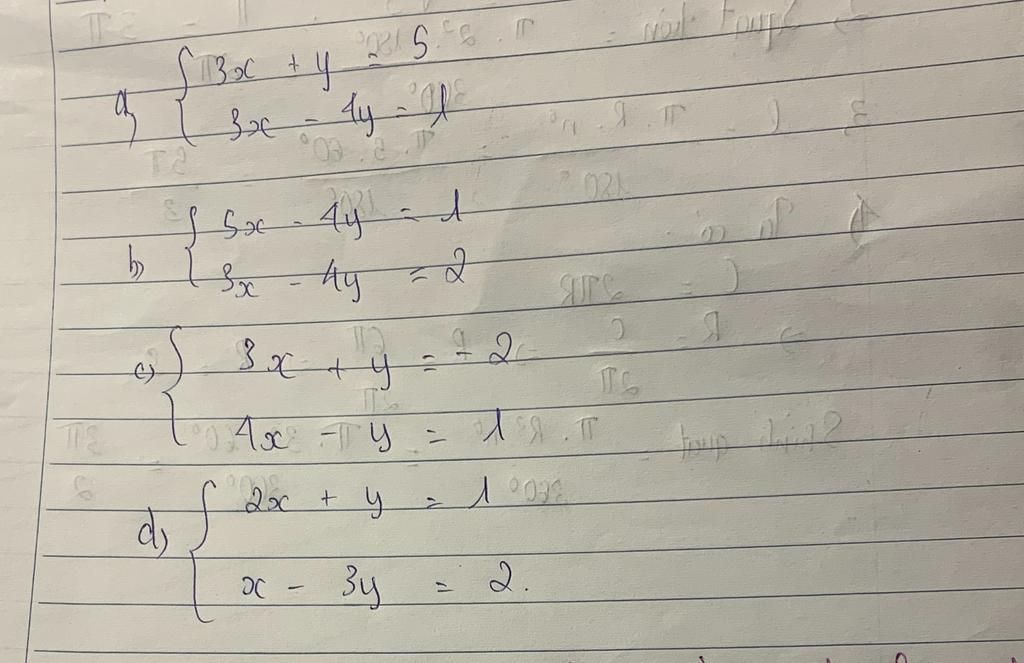 a) { 3x + y = 5
3x - 4y = 1
b) { 5x - 4y = 1
3x - 4y = 2
c) { 3x + y = - 2
4x - y = 1
d) { 2x + y = 1
x - 3y = 2.